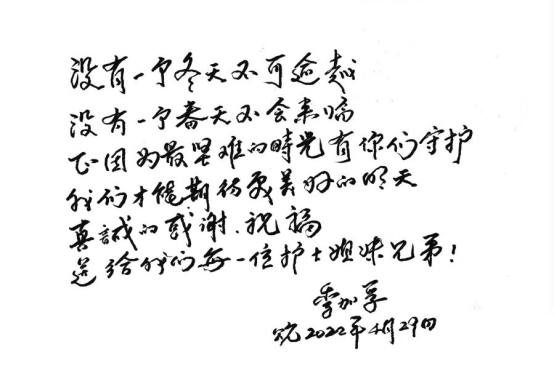 没有一个冬天不可逾越
没有一个春天不会来临
正因为最坚难的時光有你们守护
我们才能期待更美好的明天
真誠的感谢.祝福
送给我们每一位护士姐妹兄弟!
李加孚
2022年4月29日